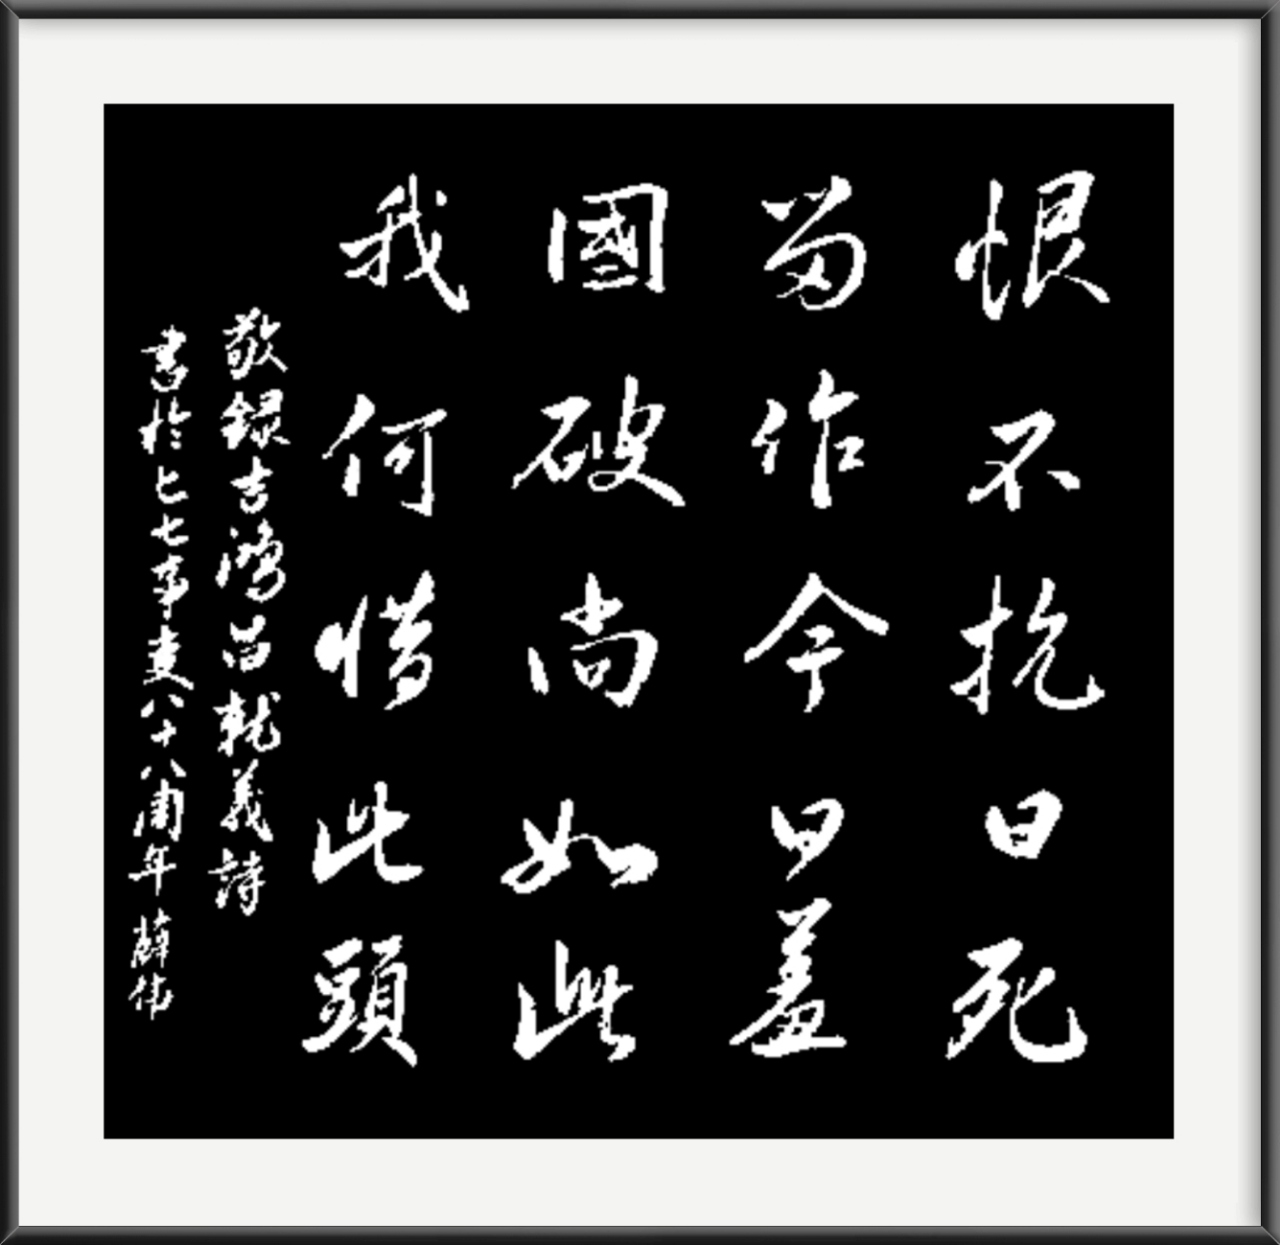 恨不抗日死
留作今日羞
國破尚如此
我何惜此頭
敬録吉鴻昌就義詩
書於七七事变八十八周年 薛伟